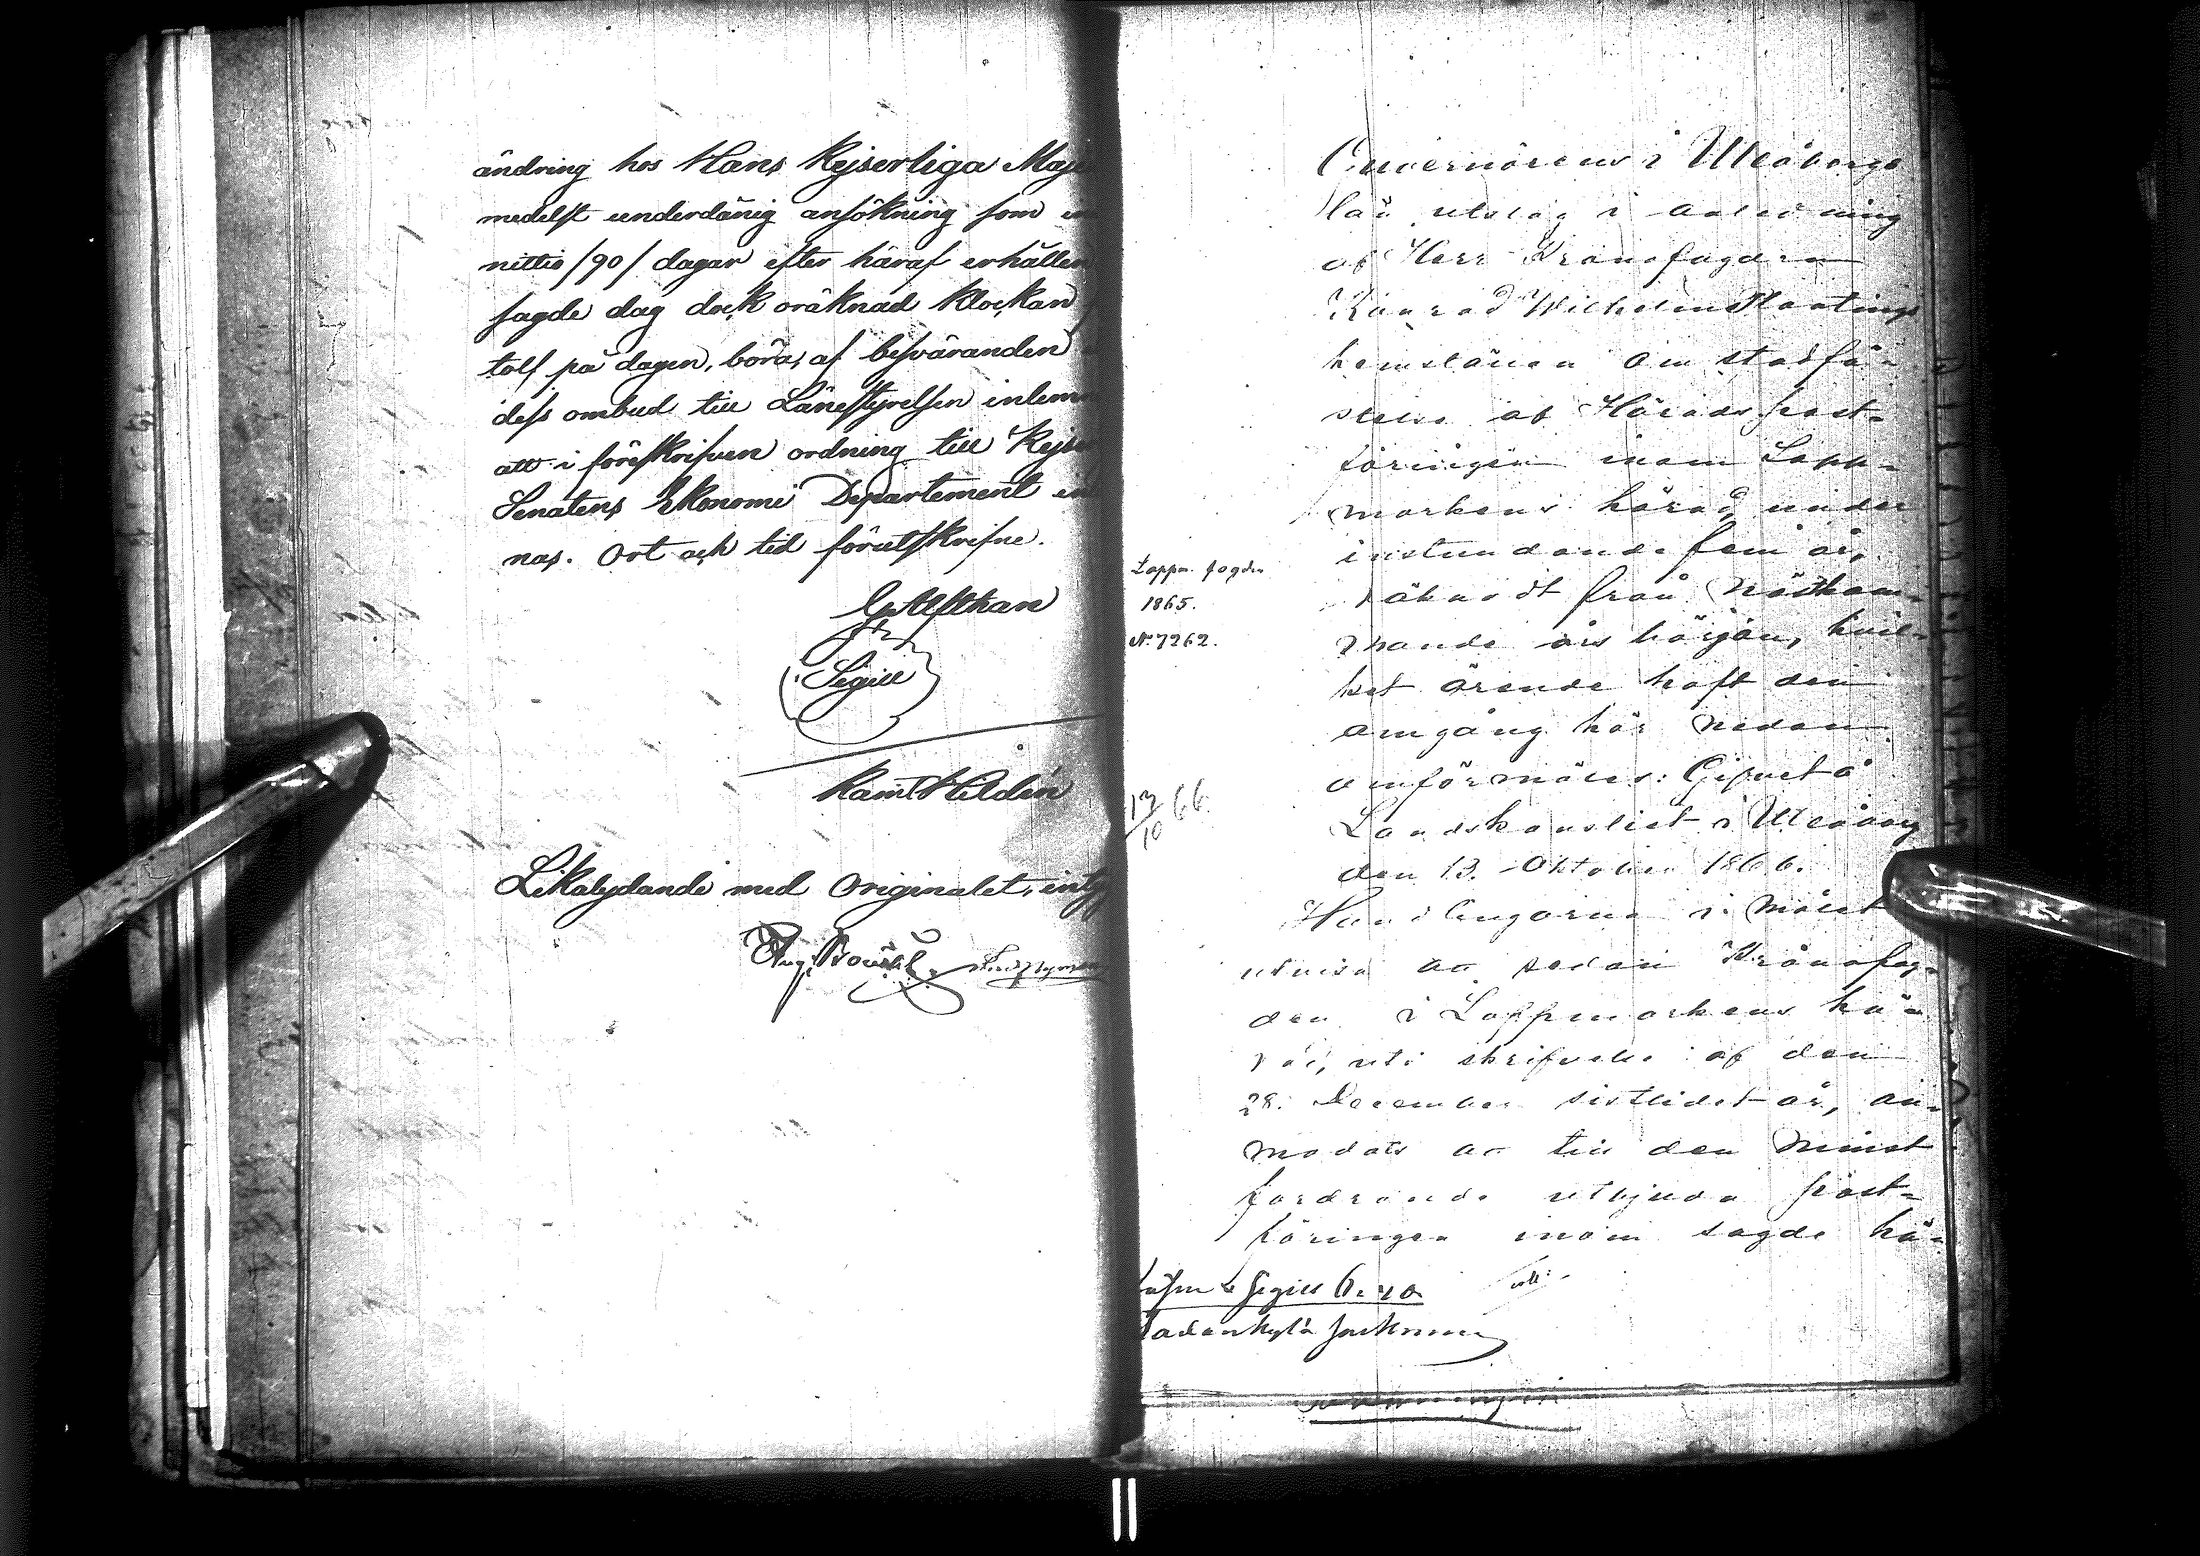 ändring hos Hans Kejserliga Maje
medelst underdånig ansökning som in
nittio /90/ dagar efter häraf erhållen
sagde dag dock oräknad klockan
tolf på dagen, böra, af besväranden
dess ombud till Länestyrelsen inlem
att i föreskrifven ordning till Kejse
Senatens Ekonomi Departement in
nas. Ort och tid förutskrifne.
G. Alfthan
Sigill
Likalydande med Originalet, inty
Guvernörens i Uleåborgs
län utslag i anledning
af Herr Kronofogden
Konrad Wilhelm
hemställan om stadfä-
stelse af Härads skjuts-
föringen inom Lapp-
markens härad under
instundande fem år,
räknadt från nästkom-
mande års början, hvil-
ket ärende haft den
omgång här nedan
omförmäles: Gifvet å
Landskansliet i Uleåborg
den 13. Oktober 1866.
Lappm. fogden
1865.
No 7262.
13/10 66.
Handlingarne i målet
utvisa att sedan Kronofog-
den i Lappmarkens hä-
rad, uti skrifvelse af den
28. December sistlidet år, an-
modats att till den minst
fordrande utbjuda
föringen inom sagde hä-
Sigill